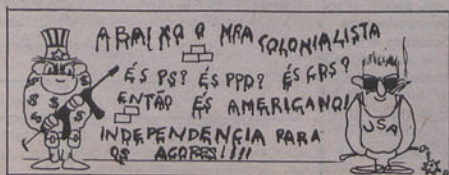 ABAIXO O MFA COLONIALISTA
ÉS PS? ÉS PPD? ÉS CDS?
ENTÃO ÉS AMERICANO!
INDEPENDENCIA PARA
OS AÇORES!!!!
USA